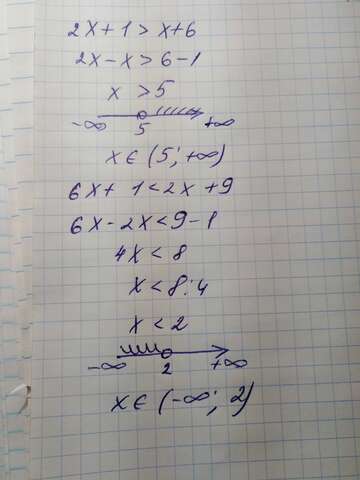 2x+1>x+6
2x-x>6-1
x >5
-∞ 5 +∞
x∈(5; +∞)
6x+ 1<2x +9
6x-2x<9-1
4x<8
x<8:4
x<2
-∞ 2 +∞
x∈(-∞; 2)